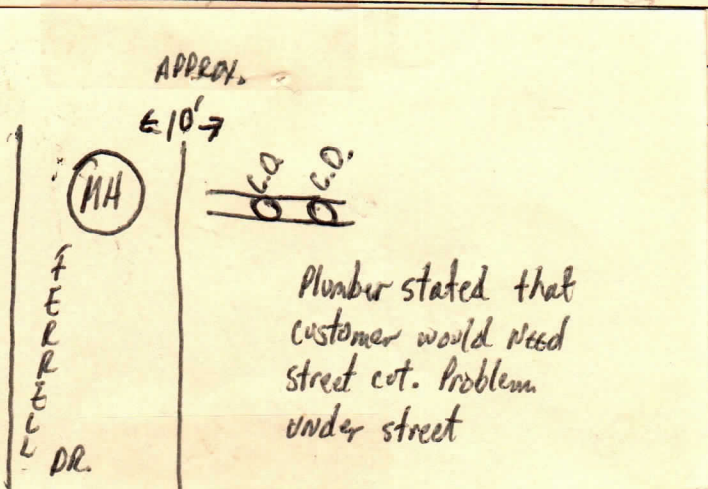 APPROX.
←10'→
MH
C.O.
C.O.
FERRELL
DR.
Plumber stated that
customer would Need
street cut. Problem
under street